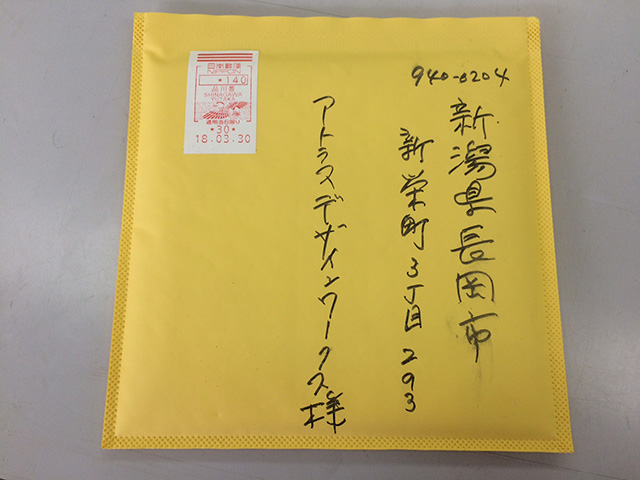 940-0204
新潟県長岡市
新栄町3丁目293
アトラスデザインワークス様
日本郵便
NIPPON
*140
品川豊
SHINAGAWA
YUTAKA
*30*
18.03.30